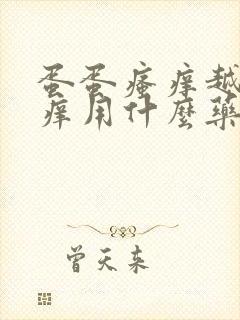 蛋蛋瘙痒越
痒用什麽藥
曾天来